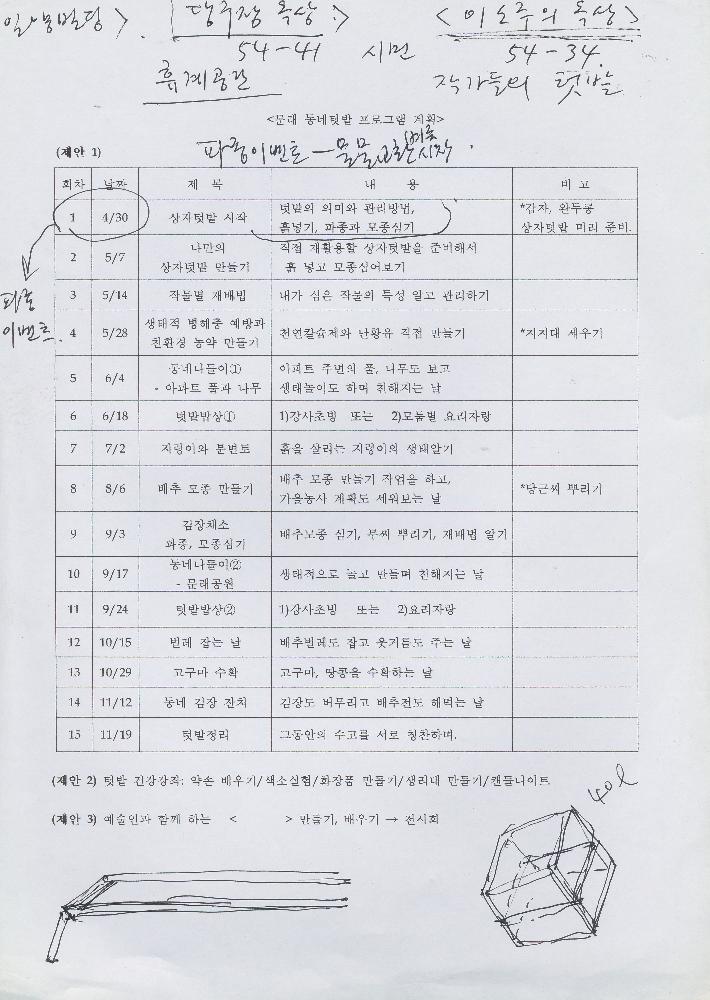 옥상> <이소주의 옥상>
54-41 시멘 54-34
휴게공간 작가들의 텃밭
<문래 동네텃밭 프로그램 계획>
(제안 1) 파종이벤트 - 물물교환 시작.
회차 날짜 제 목 내 용 비 고
1 4/30 상자텃밭 시작 텃밭의 의미와 관리방법, 흙넣기, 파종과 모종심기 *감자, 완두콩 상자텃밭 미리 준비.
2 5/7 나만의 상자텃밭 만들기 직접 재활용할 상자텃밭을 준비해서 흙 넣고 모종심어보기
3 5/14 작물별 재배법 내가 심은 작물의 특성 알고 관리하기
4 5/28 생태적 병해충 예방과 친환경 농약 만들기 천연칼슘제와 난황유 직접 만들기 *지지대 세우기
5 6/4 동네나들이① - 아파트 풀과 나무 아파트 주변의 풀, 나무도 보고 생태놀이도 하며 친해지는 날
6 6/18 텃밭밥상① 1)강사초빙 또는 2)모둠별 요리자랑
7 7/2 지렁이와 분변토 흙을 살리는 지렁이의 생태알기
8 8/6 배추 모종 만들기 배추 모종 만들기 작업을 하고, 가을농사 계획도 세워보는 날 *당근씨 뿌리기
9 9/3 김장채소 파종, 모종심기 배추모종 심기, 무씨 뿌리기, 재배법 알기
10 9/17 동네나들이② - 문래공원 생태적으로 놀고 만들며 친해지는 날
11 9/24 텃밭밥상② 1)강사초빙 또는 2)요리자랑
12 10/15 벌레 잡는 날 배추벌레도 잡고 웃거름도 주는 날
13 10/29 고구마 수확 고구마, 땅콩을 수확하는 날
14 11/12 동네 김장 잔치 김장도 버무리고 배추전도 해먹는 날
15 11/19 텃밭정리 그동안의 수고를 서로 칭찬하며.
파종
이벤트.
(제안 2) 텃밭 건강강좌: 약손 배우기/색소실험/화장품 만들기/생리대 만들기/캔들나이트
40l
(제안 3) 예술인과 함께 하는 < > 만들기, 배우기 → 전시회